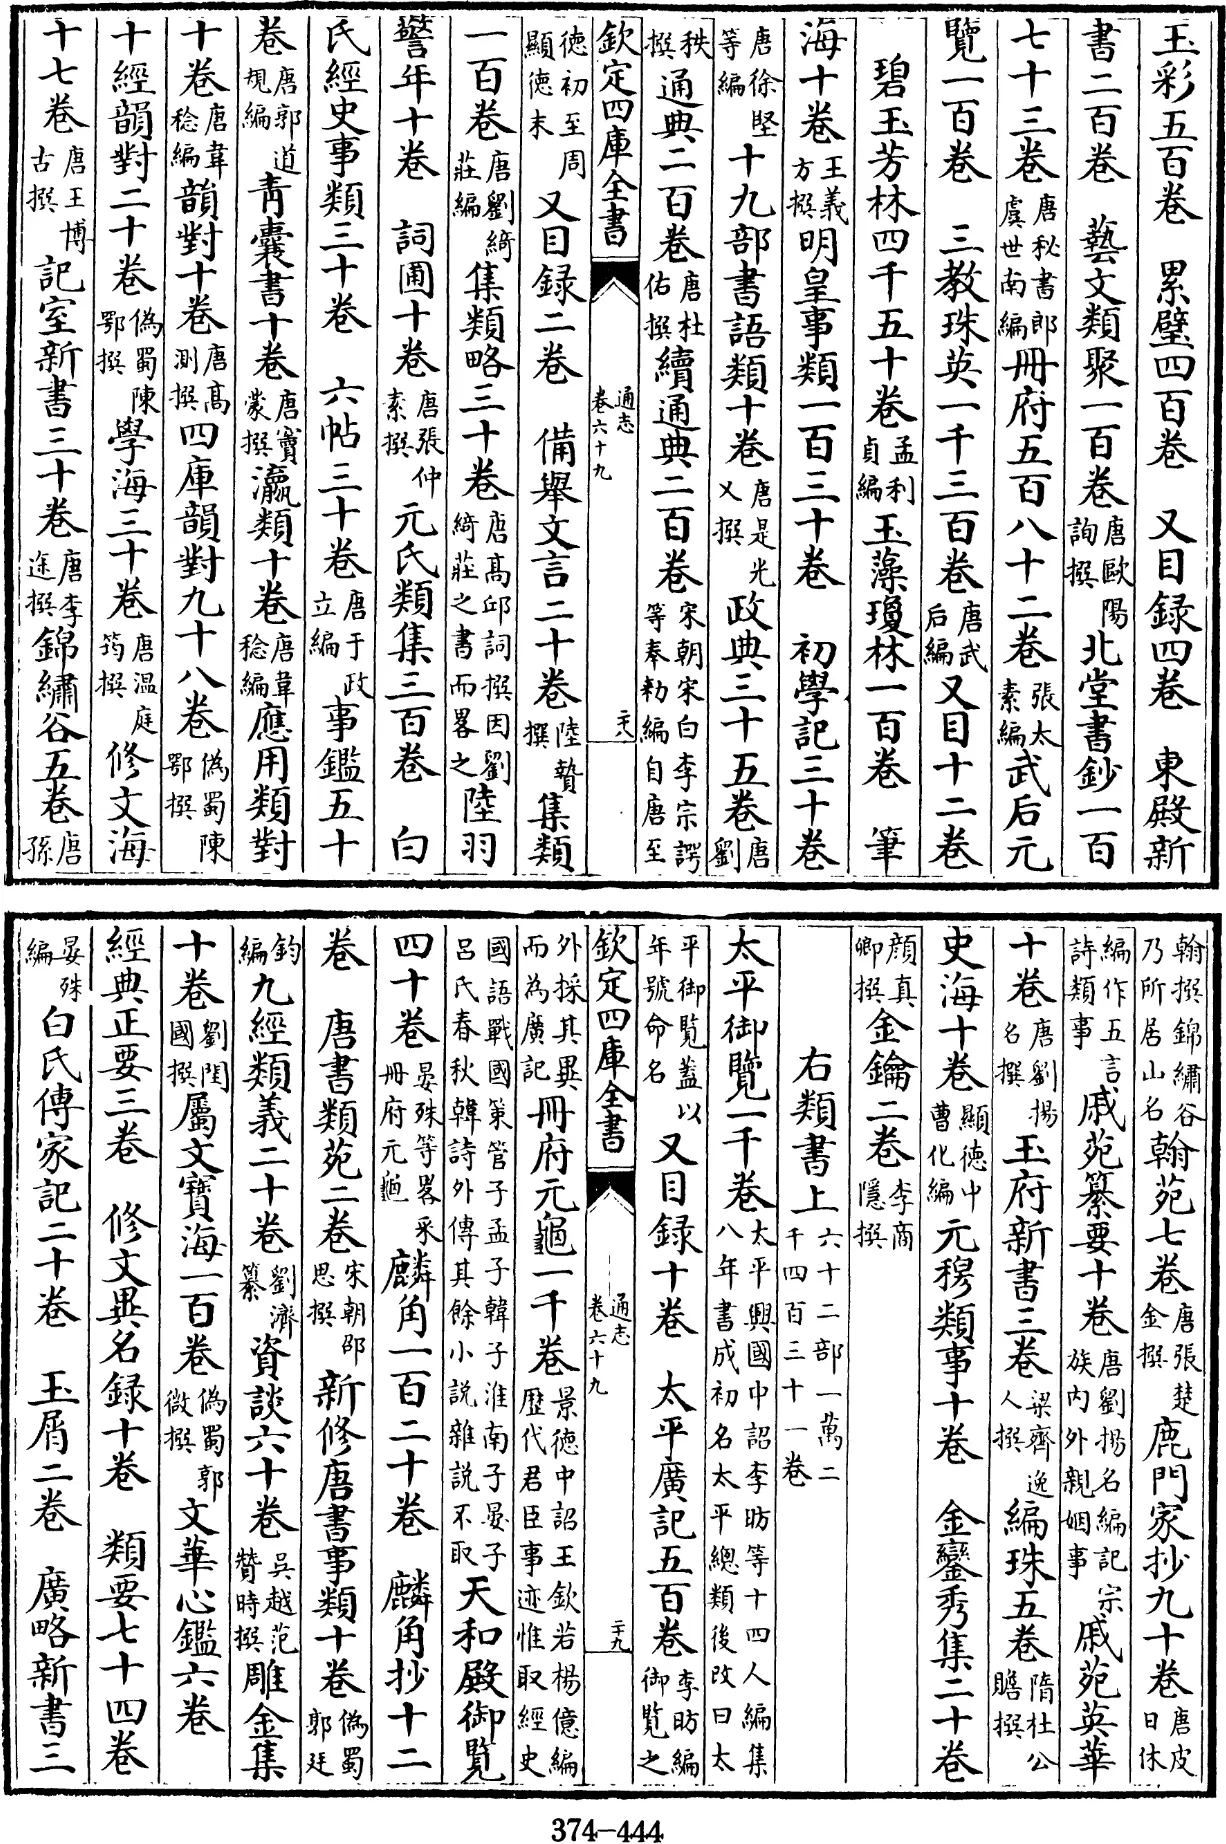 玉彩五百卷　累璧四百卷　又目録四卷　東殿新
書二百卷　藝文類聚一百卷唐歐陽詢撰北堂書鈔一百
七十三卷唐秘書郎虞世南編冊府五百八十二卷張太素編武后元
覽一百卷　三教珠英一千三百卷唐武后編又目十二卷
碧玉芳林四千五十卷孟利貞編玉藻瓊林一百卷　筆
海十卷王義方撰明皇事類一百三十卷　初學記三十卷
唐徐堅等編十九部書語類十卷唐是光乂撰政典三十五卷唐劉
秩撰通典二百卷唐杜佑撰續通典二百卷宋朝宋白李宗諤等奉勅編自唐至
欽定四庫全書　通志卷六十九　二十八
德初至周顯德末又目録二卷　備舉文言二十卷陸贄撰集類
一百卷唐劉綺莊編集類略三十卷唐高邱詞撰因劉綺莊之書而畧之陸羽
警年十卷　詞圃十卷唐張仲素撰元氏類集三百卷　白
氏經史事類三十卷　六帖三十卷唐于政立編事鑑五十
卷唐郭道規編青囊書十卷唐竇蒙撰瀛類十卷唐韋稔編應用類對
十卷唐韋稔編韻對十卷唐高測撰四庫韻對九十八卷偽蜀陳鄂撰
十經韻對二十卷偽蜀陳鄂撰學海三十卷唐溫庭筠撰修文海
十七卷唐王博古撰記室新書三十卷唐李途撰錦繡谷五卷唐孫
翰撰錦繡谷乃所居山名翰苑七卷唐張楚金撰鹿門家抄九十卷唐皮日休
編作五言詩類事戚苑纂要十卷唐劉揚名編記宗族内外親姻事戚苑英華
十卷唐劉揚名撰玉府新書三卷梁齊逸人撰編珠五卷隋杜公瞻撰
史海十卷顯德中曹化編元穆類事十卷　金鑾秀集二十卷
顔真卿撰金鑰二卷李商隱撰
右類書上六十二部一萬二千四百三十一卷
太平御覽一千卷太平興國中詔李昉等十四人編集八年書成初名太平總類後改曰太
平御覽蓋以年號命名又目録十卷　太平廣記五百卷李昉編御覽之
欽定四庫全書　通志卷六十九　二十九
外採其異而為廣記冊府元龜一千卷景德中詔王欽若楊億編歴代君臣事迹惟取經史
國語戰國策管子孟子韓子淮南子晏子吕氏春秋韓詩外傳其餘小説雜説不取天和殿御覽
四十卷晏殊等畧采冊府元龜麟角一百二十卷　麟角抄十二
卷　唐書類苑二卷宋朝邵思撰新修唐書事類十卷偽蜀郭廷
鈞編九經類義二十卷劉濟纂資談六十卷吳越范贊時撰雕金集
十卷劉閏國撰屬文寶海一百卷偽蜀郭微撰文華心鑑六卷
經典正要三卷　修文異名録十卷　類要七十四卷
晏殊編白氏傳家記二十卷　玉屑二卷　廣略新書三
374-444